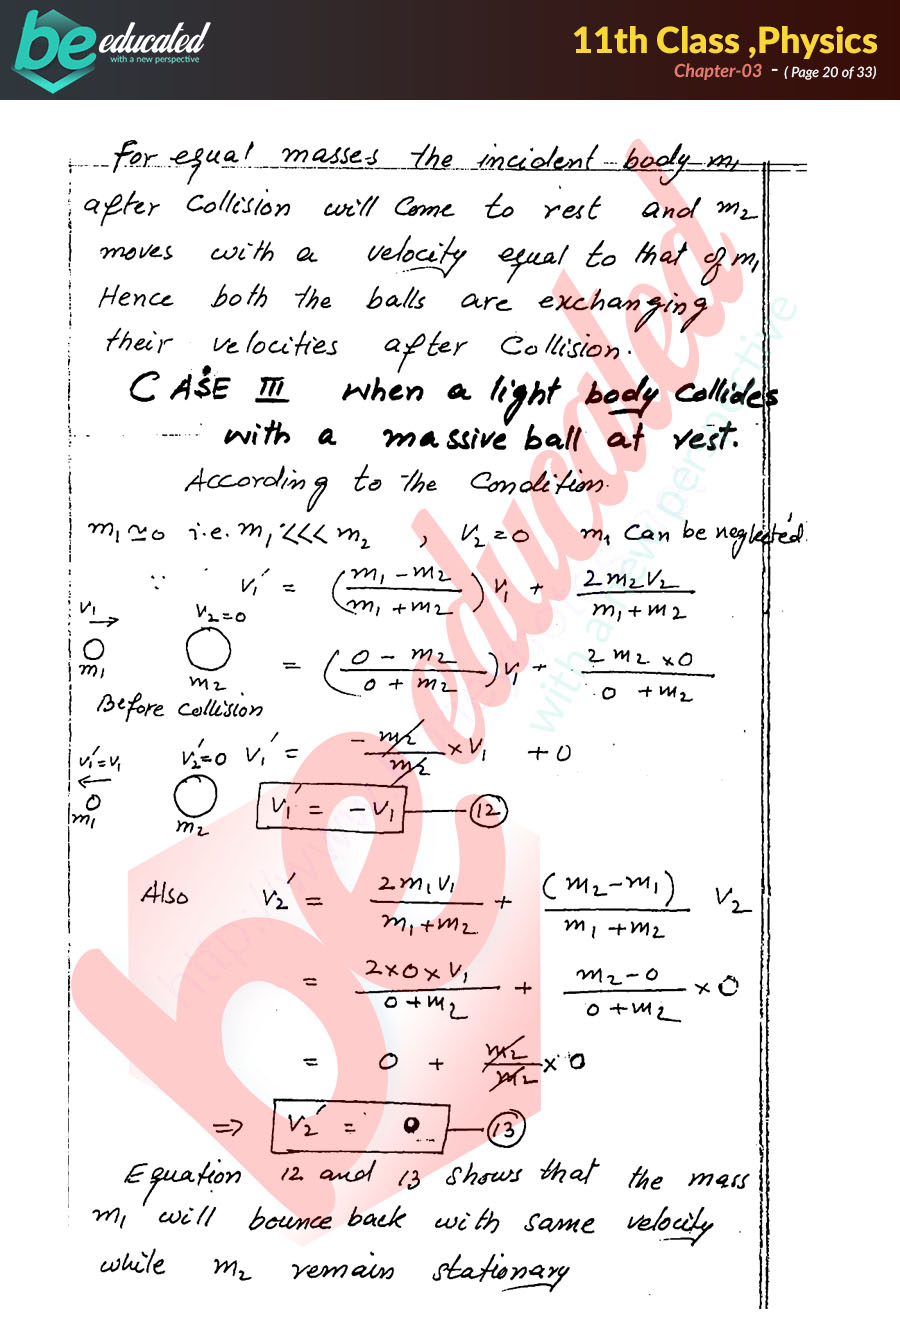 be educated
with a new perspective
11th Class ,Physics
Chapter-03 - ( Page 20 of 33)
For equal masses the incident body m₁
after Collision will Come to rest and m₂
moves with a velocity equal to that of m₁
Hence both the balls are exchanging
their velocities after Collision.
CASE III when a light body Collides
with a massive ball at rest.
According to the Condition.
m₁ ≃ 0 i.e. m₁ <<< m₂ , V₂ = 0 m₁ Can be neglected.
∵ V₁′ = (m₁ - m₂ / m₁ + m₂) V₁ + 2m₂V₂ / m₁ + m₂
V₁ → V₂=0
m₁ m₂
= (0 - m₂ / 0 + m₂) V₁ + 2 m₂ × 0 / 0 + m₂
Before Collision
V₁′ = - m₂ / m₂ × V₁ + 0
V₁′=V₁ ← V₂′=0
m₁ m₂
V₁′ = - V₁ — (12)
Also V₂′ = 2m₁V₁ / m₁ + m₂ + (m₂ - m₁) / m₁ + m₂ V₂
= 2×0×V₁ / 0 + m₂ + m₂ - 0 / 0 + m₂ × 0
= 0 + m₂ / m₂ × 0
⇒ V₂′ = 0 — (13)
Equation 12 and 13 shows that the mass
m₁ will bounce back with same velocity
while m₂ remain stationary
be educated
with a new perspective